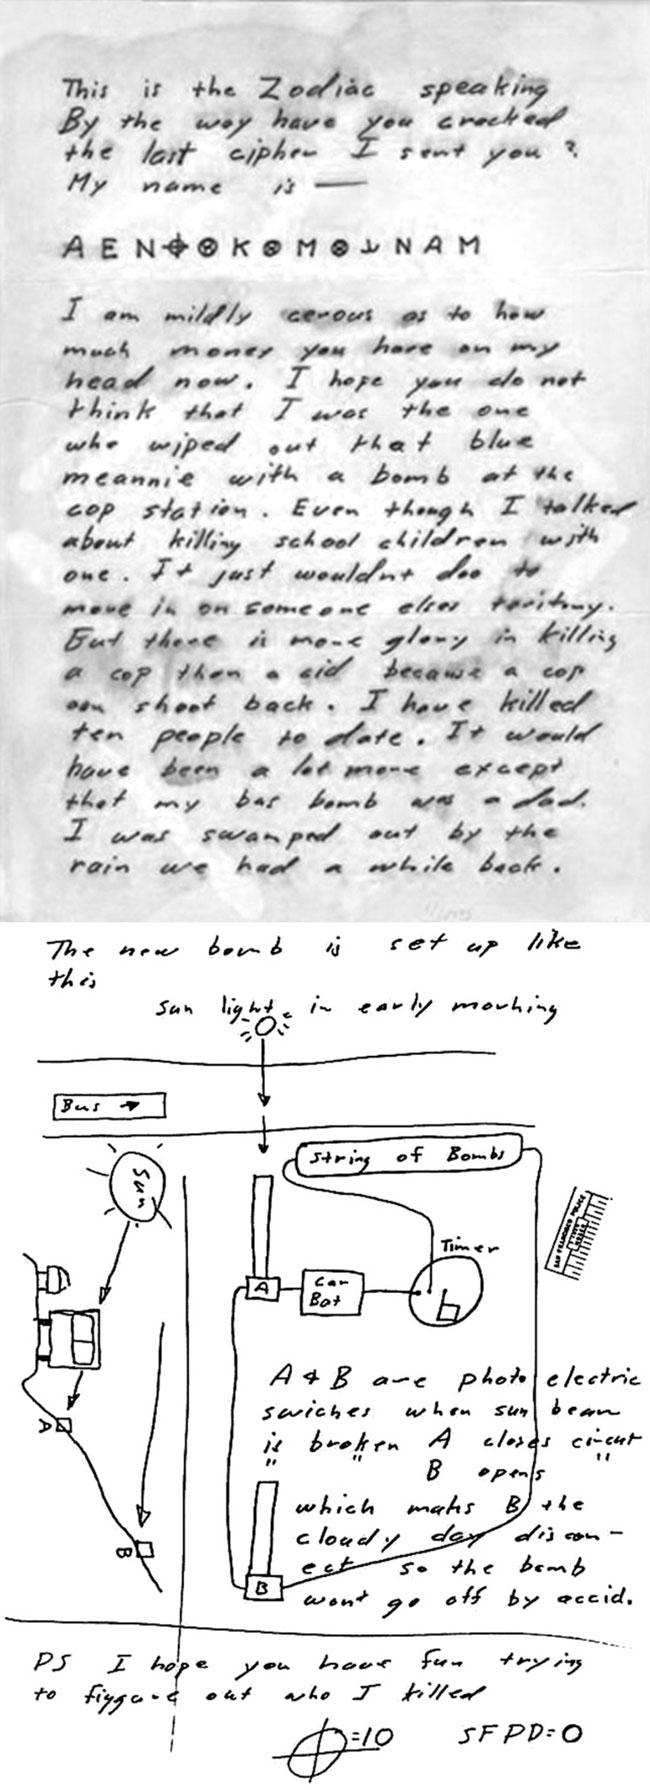 This is the Zodiac speaking
By the way have you cracked
the last cipher I sent you ?
My name is —
A E N ⌖ ⊗ K ⊗ M ⊗ ⅃ N A M
I am mildly cerous as to how
much money you have on my
head now. I hope you do not
think that I was the one
who wiped out that blue
meannie with a bomb at the
cop station. Even though I talked
about killing school children with
one. It just wouldnt doo to
move in on someone elses teritory.
But there is more glory in killing
a cop than a cid because a cop
can shoot back. I have killed
ten people to date. It would
have been a lot more except
that my bus bomb was a dud.
I was swamped out by the
rain we had a while back.
The new bomb is set up like
this
sun light in early morning
Bus →
Sun
String of Bombs
SAN FRANCISCO POLICE
Timer
A
Car
Bat
A & B are photo electric
swiches when sun beam
is broken A closes circut
" " B opens "
A
B
which maks B the
cloudy day discon-
ect so the bomb
wont go off by accid.
B
PS I hope you have fun trying
to figgure out who I killed
⌖=10 SFPD=0